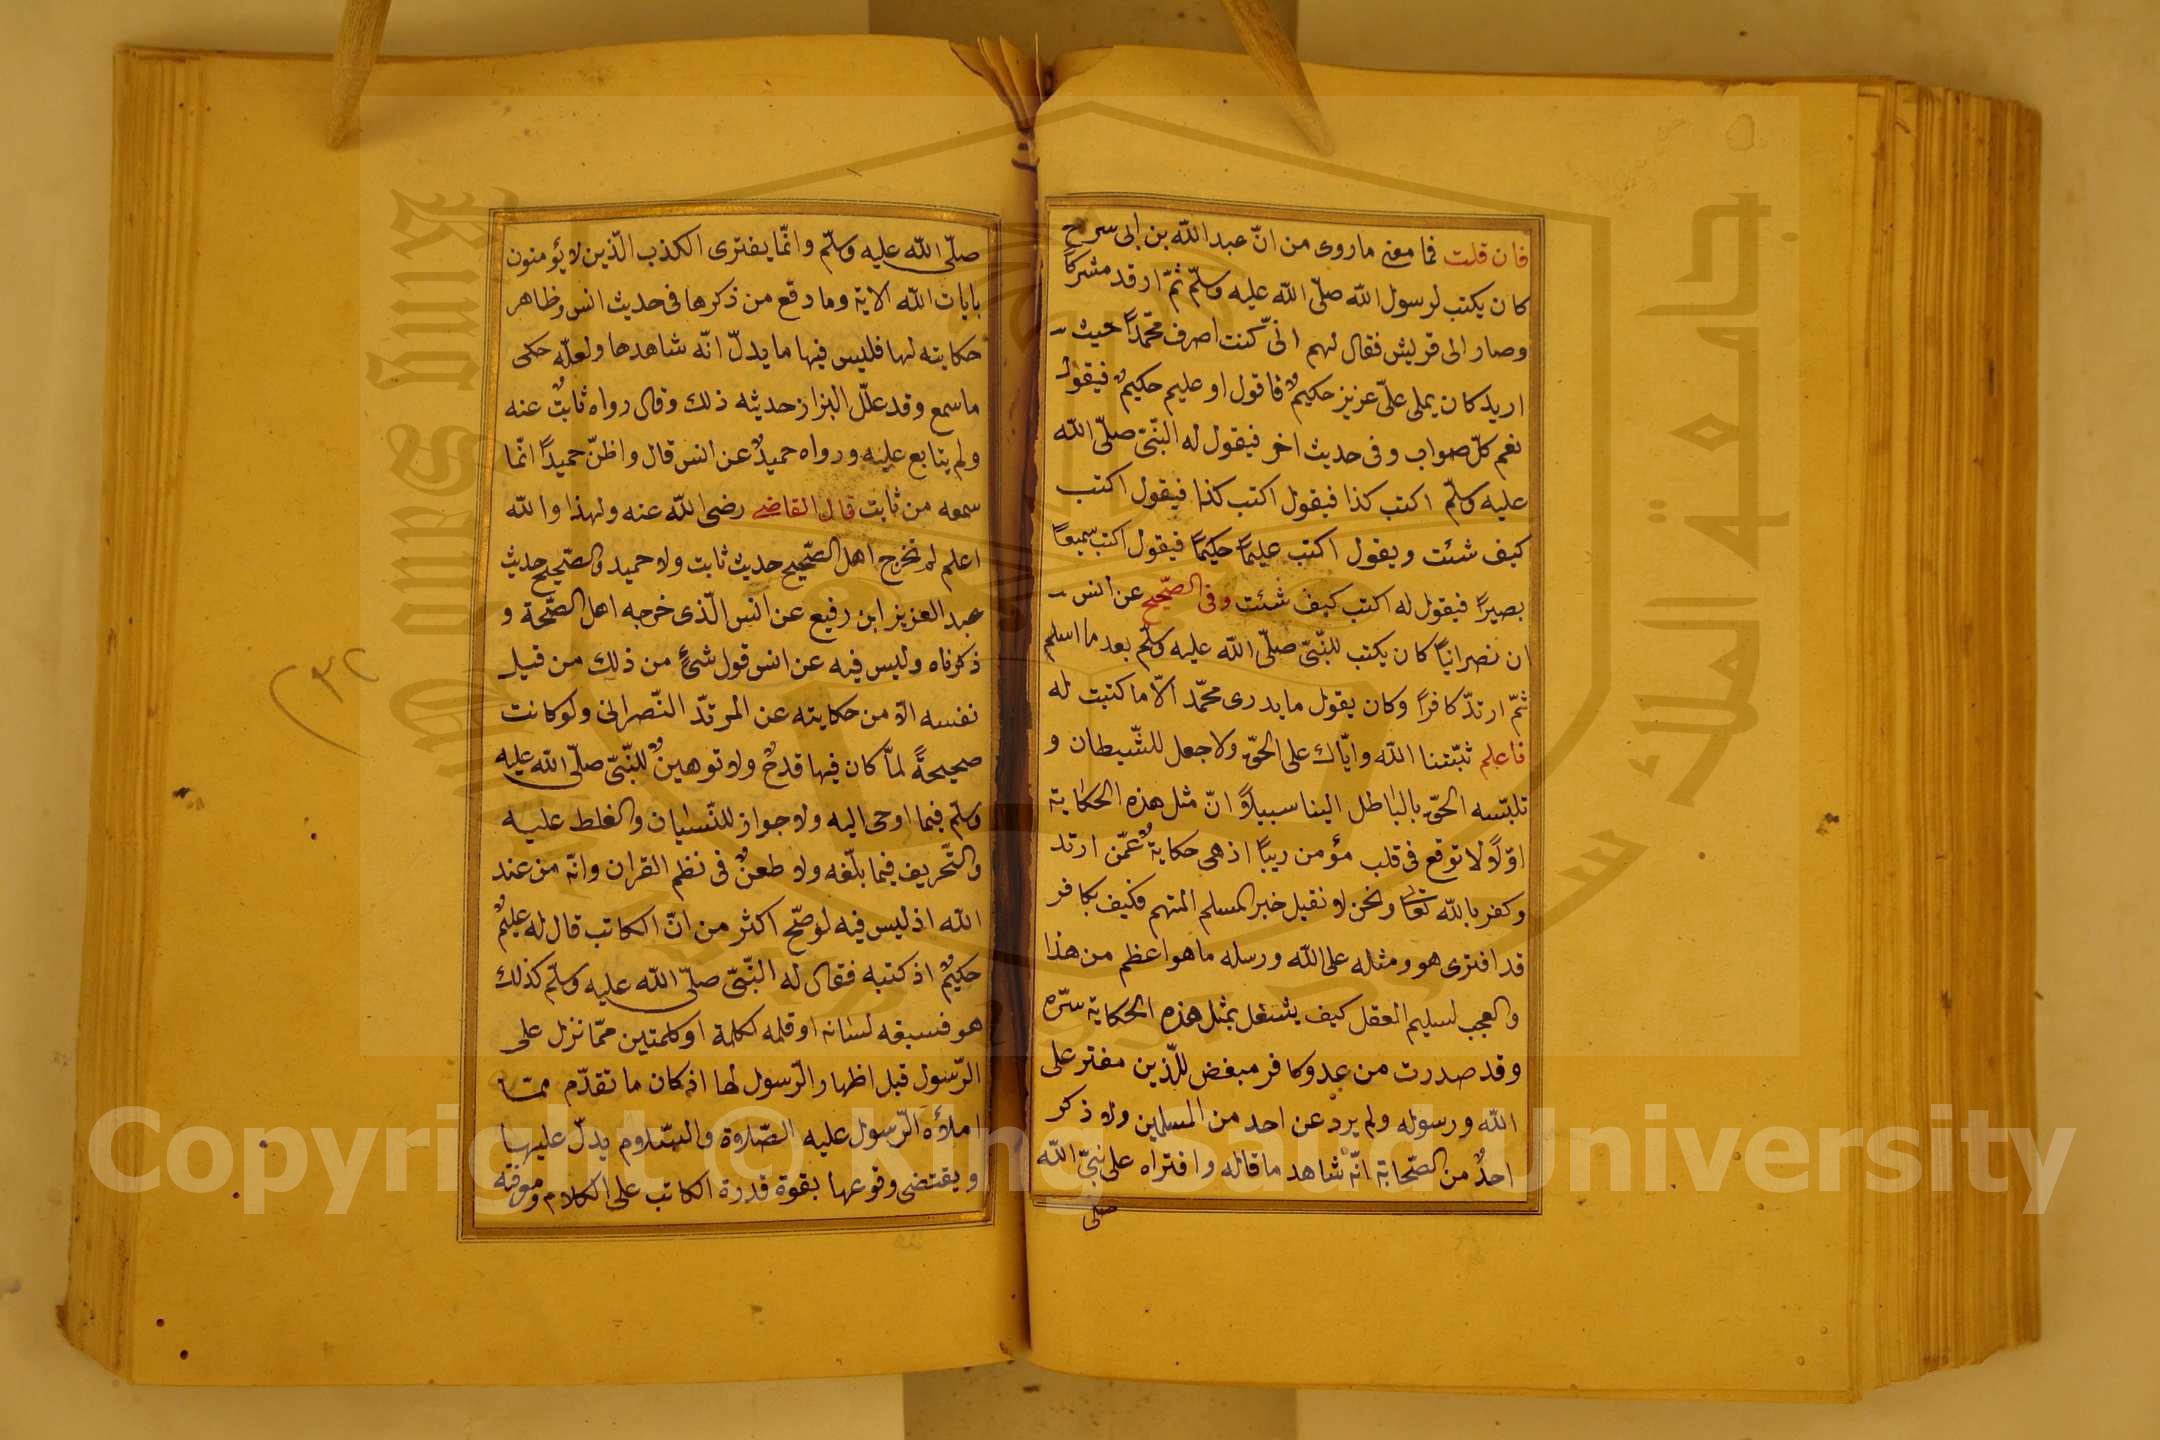 فان قلت فما معنى ماروى من انّ عبدالله بن ابى سرح
كان يكتب لرسول الله صلّى الله عليه وسلّم ثمّ ارتد مشركاً
وصار الى قريش فقال لهم انّى كنت اصرف محمّداً حيث
اريد كان يملى علىّ عزيز حكيمٌ فاقول او عليم حكيمٌ فيقول
نعم كلّ صواب وفى حديث اخر فيقول له النّبىّ صلّى الله
عليه وسلّم اكتب كذا فيقول اكتب كذا فيقول اكتب
كيف شئت ويقول اكتب عليماً حكيماً فيقول اكتب سميعاً
بصيراً فيقول له اكتب كيف شئت وفى الصّحيح عن انس
ان نصرانيّاً كان يكتب للنّبىّ صلّى الله عليه وسلّم بعد ما اسلم
ثمّ ارتدّ كافراً وكان يقول مايدرى محمّد الّا ماكتبت له
فاعلم ثبّتنا الله وايّاك على الحقّ ولاجعل للشّيطان و
تلبّسه الحقّ بالباطل الينا سبيلاً انّ مثل هذه الحكاية
اوّلاً لا توقع فى قلب مؤمن ريباً اذ هى حكايةٌ عمّن ارتد
وكفر بالله تعالى ونحن لا نقبل خبر المسلم المتهم فكيف بكافر
قد افترى هو ومثله على الله ورسله ماهو اعظم من هذا
والعجب لسليم العقل كيف يشتغل بمثل هذه الحكاية سرّه
وقد صدرت من عدوكافر مبغض للّذين مفتر على
الله ورسوله ولم يرد عن احد من المسلمين ولا ذكر
احدٌ من الصّحابة انّه شاهد ماقاله وافتراه على نبىّ الله
صلى
صلّى الله عليه وسلّم وانّما يفترى الكذب الّذين لايؤمنون
بايات الله الاية وما وقع من ذكرها فى حديث انس وظاهر
حكايته لها فليس فيها ما يدلّ انّه شاهدها ولعلّه حكى
ماسمع وقد علّل البزاز حديثه ذلك وقال رواه ثابتٌ عنه
ولم يتابع عليه ورواه حميدٌ عن انس قال واظنّ حميداً انّما
سمعه من ثابت قال القاضى رضى الله عنه ولهذا والله
اعلم لم تخرج اهل الصّحيح حديث ثابت ولا حميد والصّحيح حديث
عبد العزيز ابن رفيع عن انس الّذى خرجه اهل الصّحة و
ذكرناه وليس فيه عن انس قول شئٍ من ذلك من قبل
نفسه الّا من حكايته عن المرتدّ النّصرانى ولوكانت
صحيحةً لمّا كان فيها قدحٌ ولا توهينٌ للنّبىّ صلّى الله عليه
وسلّم فيما اوحى اليه ولا جواز للنّسيان والغلط عليه
والتّحريف فيما بلّغه ولا طعنٌ فى نظم القران وانّه من عند
الله اذ ليس فيه لوصّح اكثر من انّ الكاتب قال له عليمٌ
حكيمٌ اذ كتبه فقال له النّبىّ صلّى الله عليه وسلّم كذلك
هو فسبقه لسانه او قلمه لكلمة اوكلمتين ممّا نزل على
الرّسول قبل اظهار الرّسول لها اذ كان ما تقدّم ممّا
املأه الرّسول عليه الصّلوة والسّلام يدلّ عليها
ويقتضى وقوعها بقوة قدرة الكاتب على الكلام ومعرفته
٢٣٢
King Saud University
جامعة الملك سعود
Copyright © King Saud University